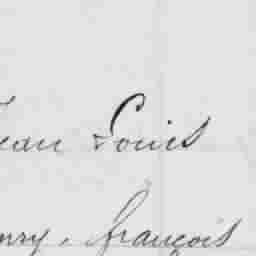 Jean Louis
enry, françois